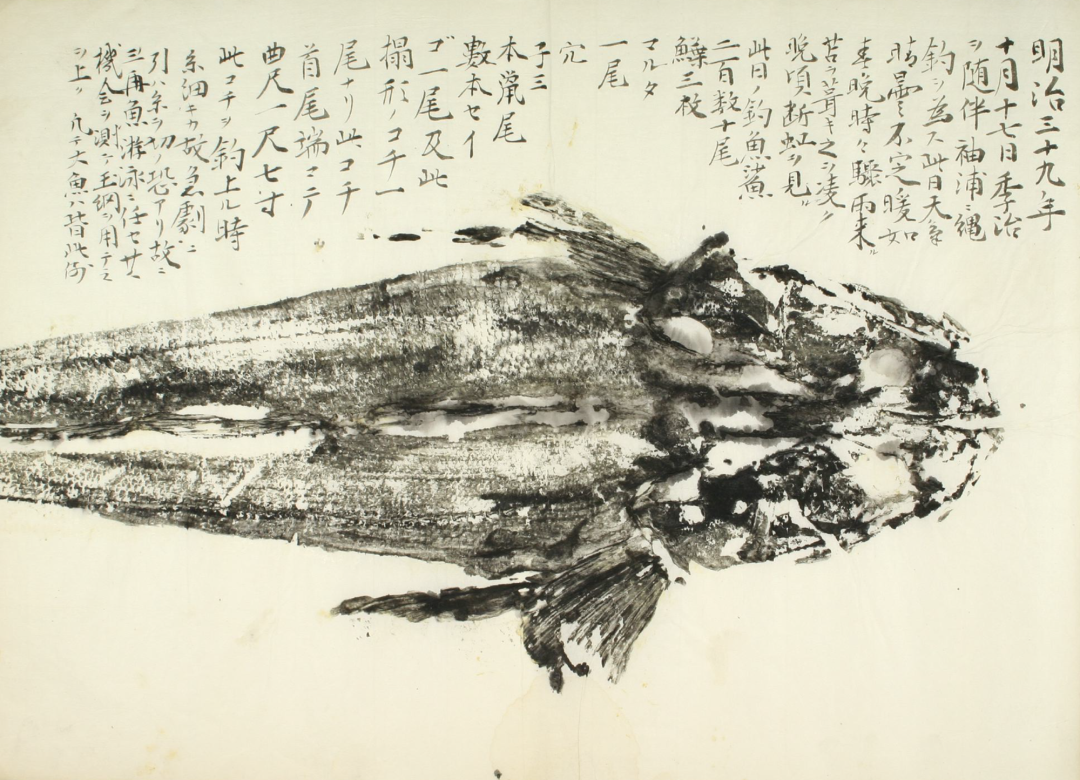 明治三十九年
十月十七日季治
ヲ随伴袖浦ニ縄
釣ヲ為ス此日天氣
晴曇不定暖如
春晩時々驟雨来ル
苫ヲ葺キ之ヲ凌ク
晩頃断虹ヲ見ル
此日ノ釣魚鯊
二百数十尾
鰈三枚
マルタ
一尾
穴
子三
本鼠尾
数本セイ
ゴ一尾及此
搨形ノコチ一
尾ナリ此コチ
首尾端マテ
曲尺一尺七寸
此コチヲ釣上ル時
糸細キカ故急劇ニ
引ハ糸ヲ切ノ恐アリ故ニ
三再魚游泳ニ任セサ
機会ヲ測テ玉網ヲ用テ
ヲ上ク凡テ大魚ハ皆此